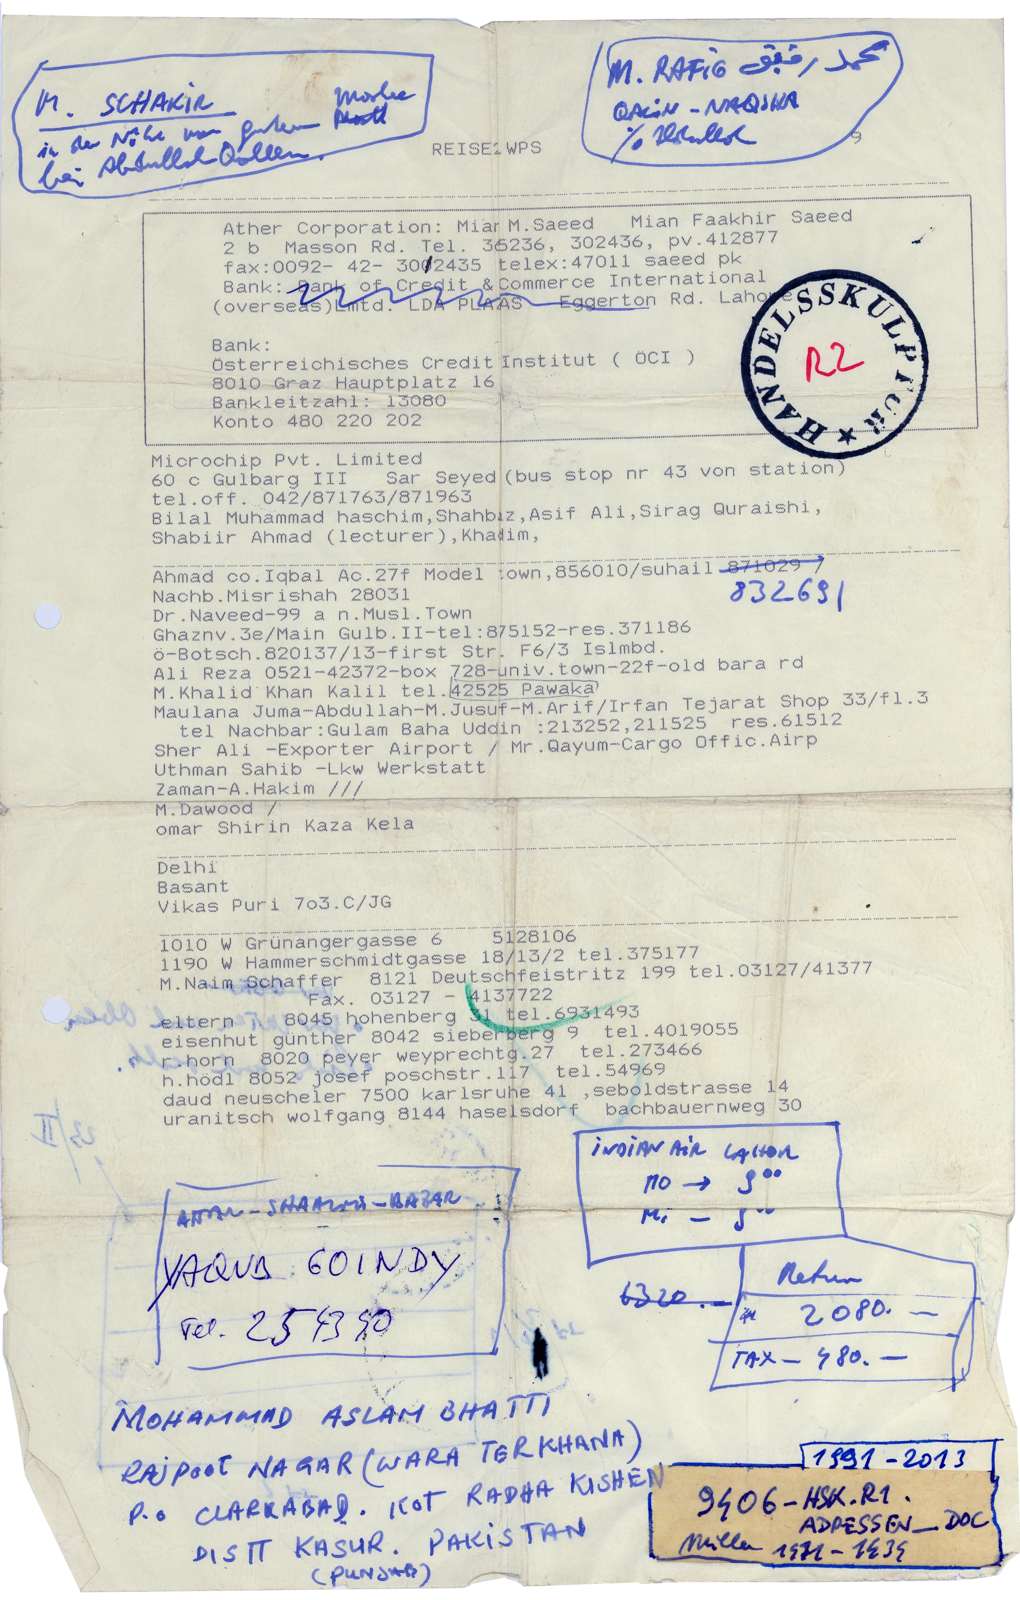 M. SCHAKIR
in der Nähe von guten
bei Abdullah
M. RAFIG محمد رفیق
QALIN - NAQSHA
% Abdullah
REISE2WPS
9
Ather Corporation: Mian M.Saeed Mian Faakhir Saeed
2 b Masson Rd. Tel. 36236, 302436, pv.412877
fax:0092- 42- 3002435 telex:47011 saeed pk
Bank: Bank of Credit & Commerce International
(overseas)Lmtd. LDA PLAAS Eggerton Rd. Lahore
HANDELSSKULPTUR ★
R2
Bank:
Österreichisches Credit Institut ( ÖCI )
8010 Graz Hauptplatz 16
Bankleitzahl: 13080
Konto 480 220 202
Microchip Pvt. Limited
60 c Gulbarg III Sar Seyed (bus stop nr 43 von station)
tel.off. 042/871763/871963
Bilal Muhammad haschim,Shahbiz,Asif Ali,Sirag Quraishi,
Shabiir Ahmad (lecturer),Khadim,
Ahmad co.Iqbal Ac.27f Model town,856010/suhail 871029 /
832691
Nachb.Misrishah 28031
Dr.Naveed-99 a n.Musl.Town
Ghaznv.3e/Main Gulb.II-tel:875152-res.371186
ö-Botsch.820137/13-first Str. F6/3 Islmbd.
Ali Reza 0521-42372-box 728-univ.town-22f-old bara rd
M.Khalid Khan Kalil tel.42525 Pawaka
Maulana Juma-Abdullah-M.Jusuf-M.Arif/Irfan Tejarat Shop 33/fl.3
tel Nachbar:Gulam Baha Uddin :213252,211525 res.61512
Sher Ali -Exporter Airport / Mr.Qayum-Cargo Offic.Airp
Uthman Sahib -Lkw Werkstatt
Zaman-A.Hakim ///
M.Dawood /
omar Shirin Kaza Kela
Delhi
Basant
Vikas Puri 7o3.C/JG
1010 W Grünangergasse 6 5128106
1190 W Hammerschmidtgasse 18/13/2 tel.375177
M.Naim Schaffer 8121 Deutschfeistritz 199 tel.03127/41377
Fax. 03127 - 4137722
eltern 8045 hohenberg 31 tel.6931493
eisenhut günther 8042 sieberberg 9 tel.4019055
r.horn 8020 peyer weyprechtg.27 tel.273466
h.hödl 8052 josef poschstr.117 tel.54969
daud neuscheler 7500 karlsruhe 41 ,seboldstrasse 14
uranitsch wolfgang 8144 haselsdorf bachbauernweg 30
INDIAN AIR LAHOR
MO → 9⁰⁰
Mi - 9⁰⁰
BAZAR
YAQUB GOINDY
Tel. 254390
6320.-
Return
2080.-
TAX - 480.-
MOHAMMAD ASLAM BHATTI
RAJPOOT NAGAR (WARA TERKHANA)
P.O CLARKABAD. KOT RADHA KISHEN
DISTT KASUR. PAKISTAN
(PUNJAB)
1991-2013
9406-HSK.R1.
ADRESSEN_DOC